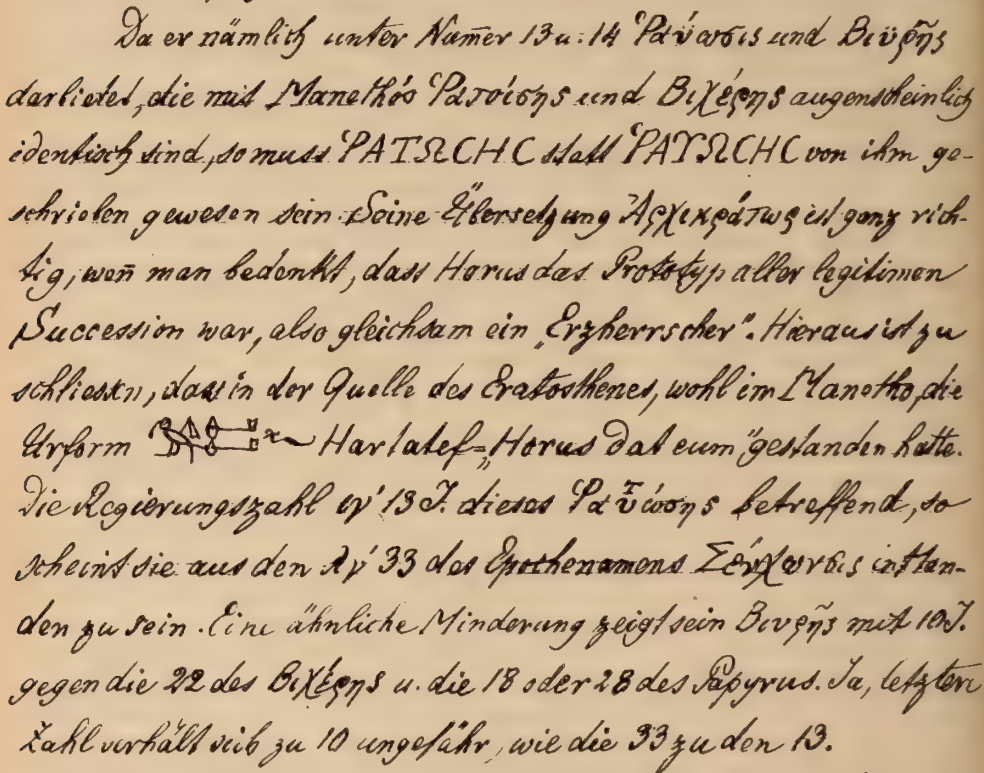 Da er nämlich unter Num̄er 13 u. 14 Ῥαύωσις und Βιϋρῆς
darbietet, die mit Manethós Ῥατοίσης und Βιχέρης augenscheinlich
identisch sind, so muss ῬΑΤΩCΗC statt ῬΑΥΩCΗC von ihm ge-
schrieben gewesen sein. Seine Übersetzung Ἀρχικράτωρ ist ganz rich-
tig, wen̄ man bedenkt, dass Horus das Prototyp aller legitimen
Succession war, also gleichsam ein „Erzherrscher". Hieraus ist zu
schliessen, dass in der Quelle des Eratosthenes, wohl im Manetho, die
Urform Hartatef = „Horus dat eum" gestanden hatte.
Die Regierungszahl ιγ' 13 J. dieses Ῥαϋώσης betreffend, so
scheint sie aus den λγ' 33 des Epochenamens Σέγχωσις entstan-
den zu sein. Eine ähnliche Minderung zeigt sein Βιυρῆς mit 10 J.
gegen die 22 des Βιχέρης u. die 18 oder 28 des Papyrus. Ja, letztere
Zahl verhält sich zu 10 ungefähr, wie die 33 zu den 13.